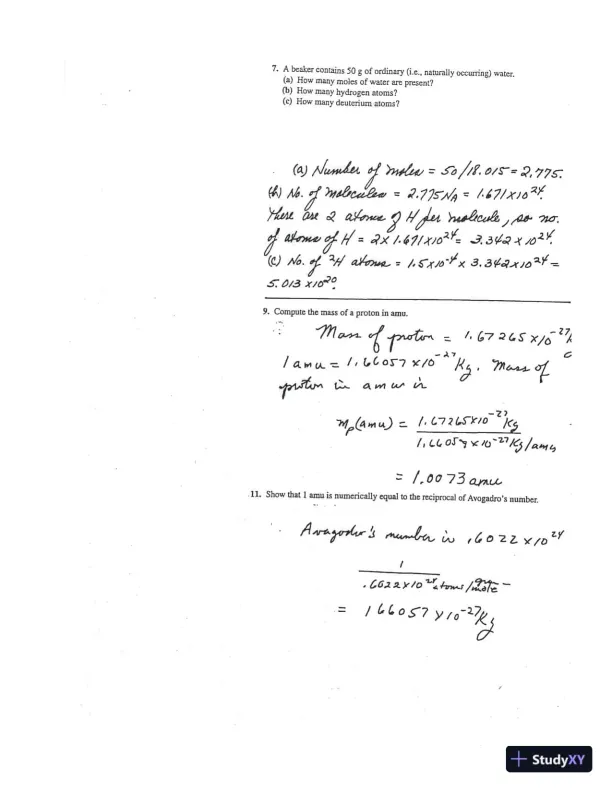 7. A beaker contains 50 g of ordinary (i.e., naturally occurring) water.
(a) How many moles of water are present?
(b) How many hydrogen atoms?
(c) How many deuterium atoms?
(a) Number of moles = 50/18.015 = 2.775.
(b) No. of molecules = 2.775 NA = 1.671 x 10^24.
There are 2 atoms of H per molecule, so no.
of atoms of H = 2 x 1.671 x 10^24 = 3.342 x 10^24.
(c) No. of ^2H atoms = 1.5 x 10^-4 x 3.342 x 10^24 =
5.013 x 10^20.
9. Compute the mass of a proton in amu.
Mass of proton = 1.67265 x 10^-27 k
1 amu = 1.66057 x 10^-27 Kg. Mass of
proton in amu is
mp(amu) = 1.67265 x 10^-27 Kg
1.66057 x 10^-27 Kg/amu
= 1.0073 amu
11. Show that 1 amu is numerically equal to the reciprocal of Avogadro's number.
Avagodro's number is .6022 x 10^24
1
.6022 x 10^24 atoms/mole
= 166057 x 10^-27 Kg
StudyXY